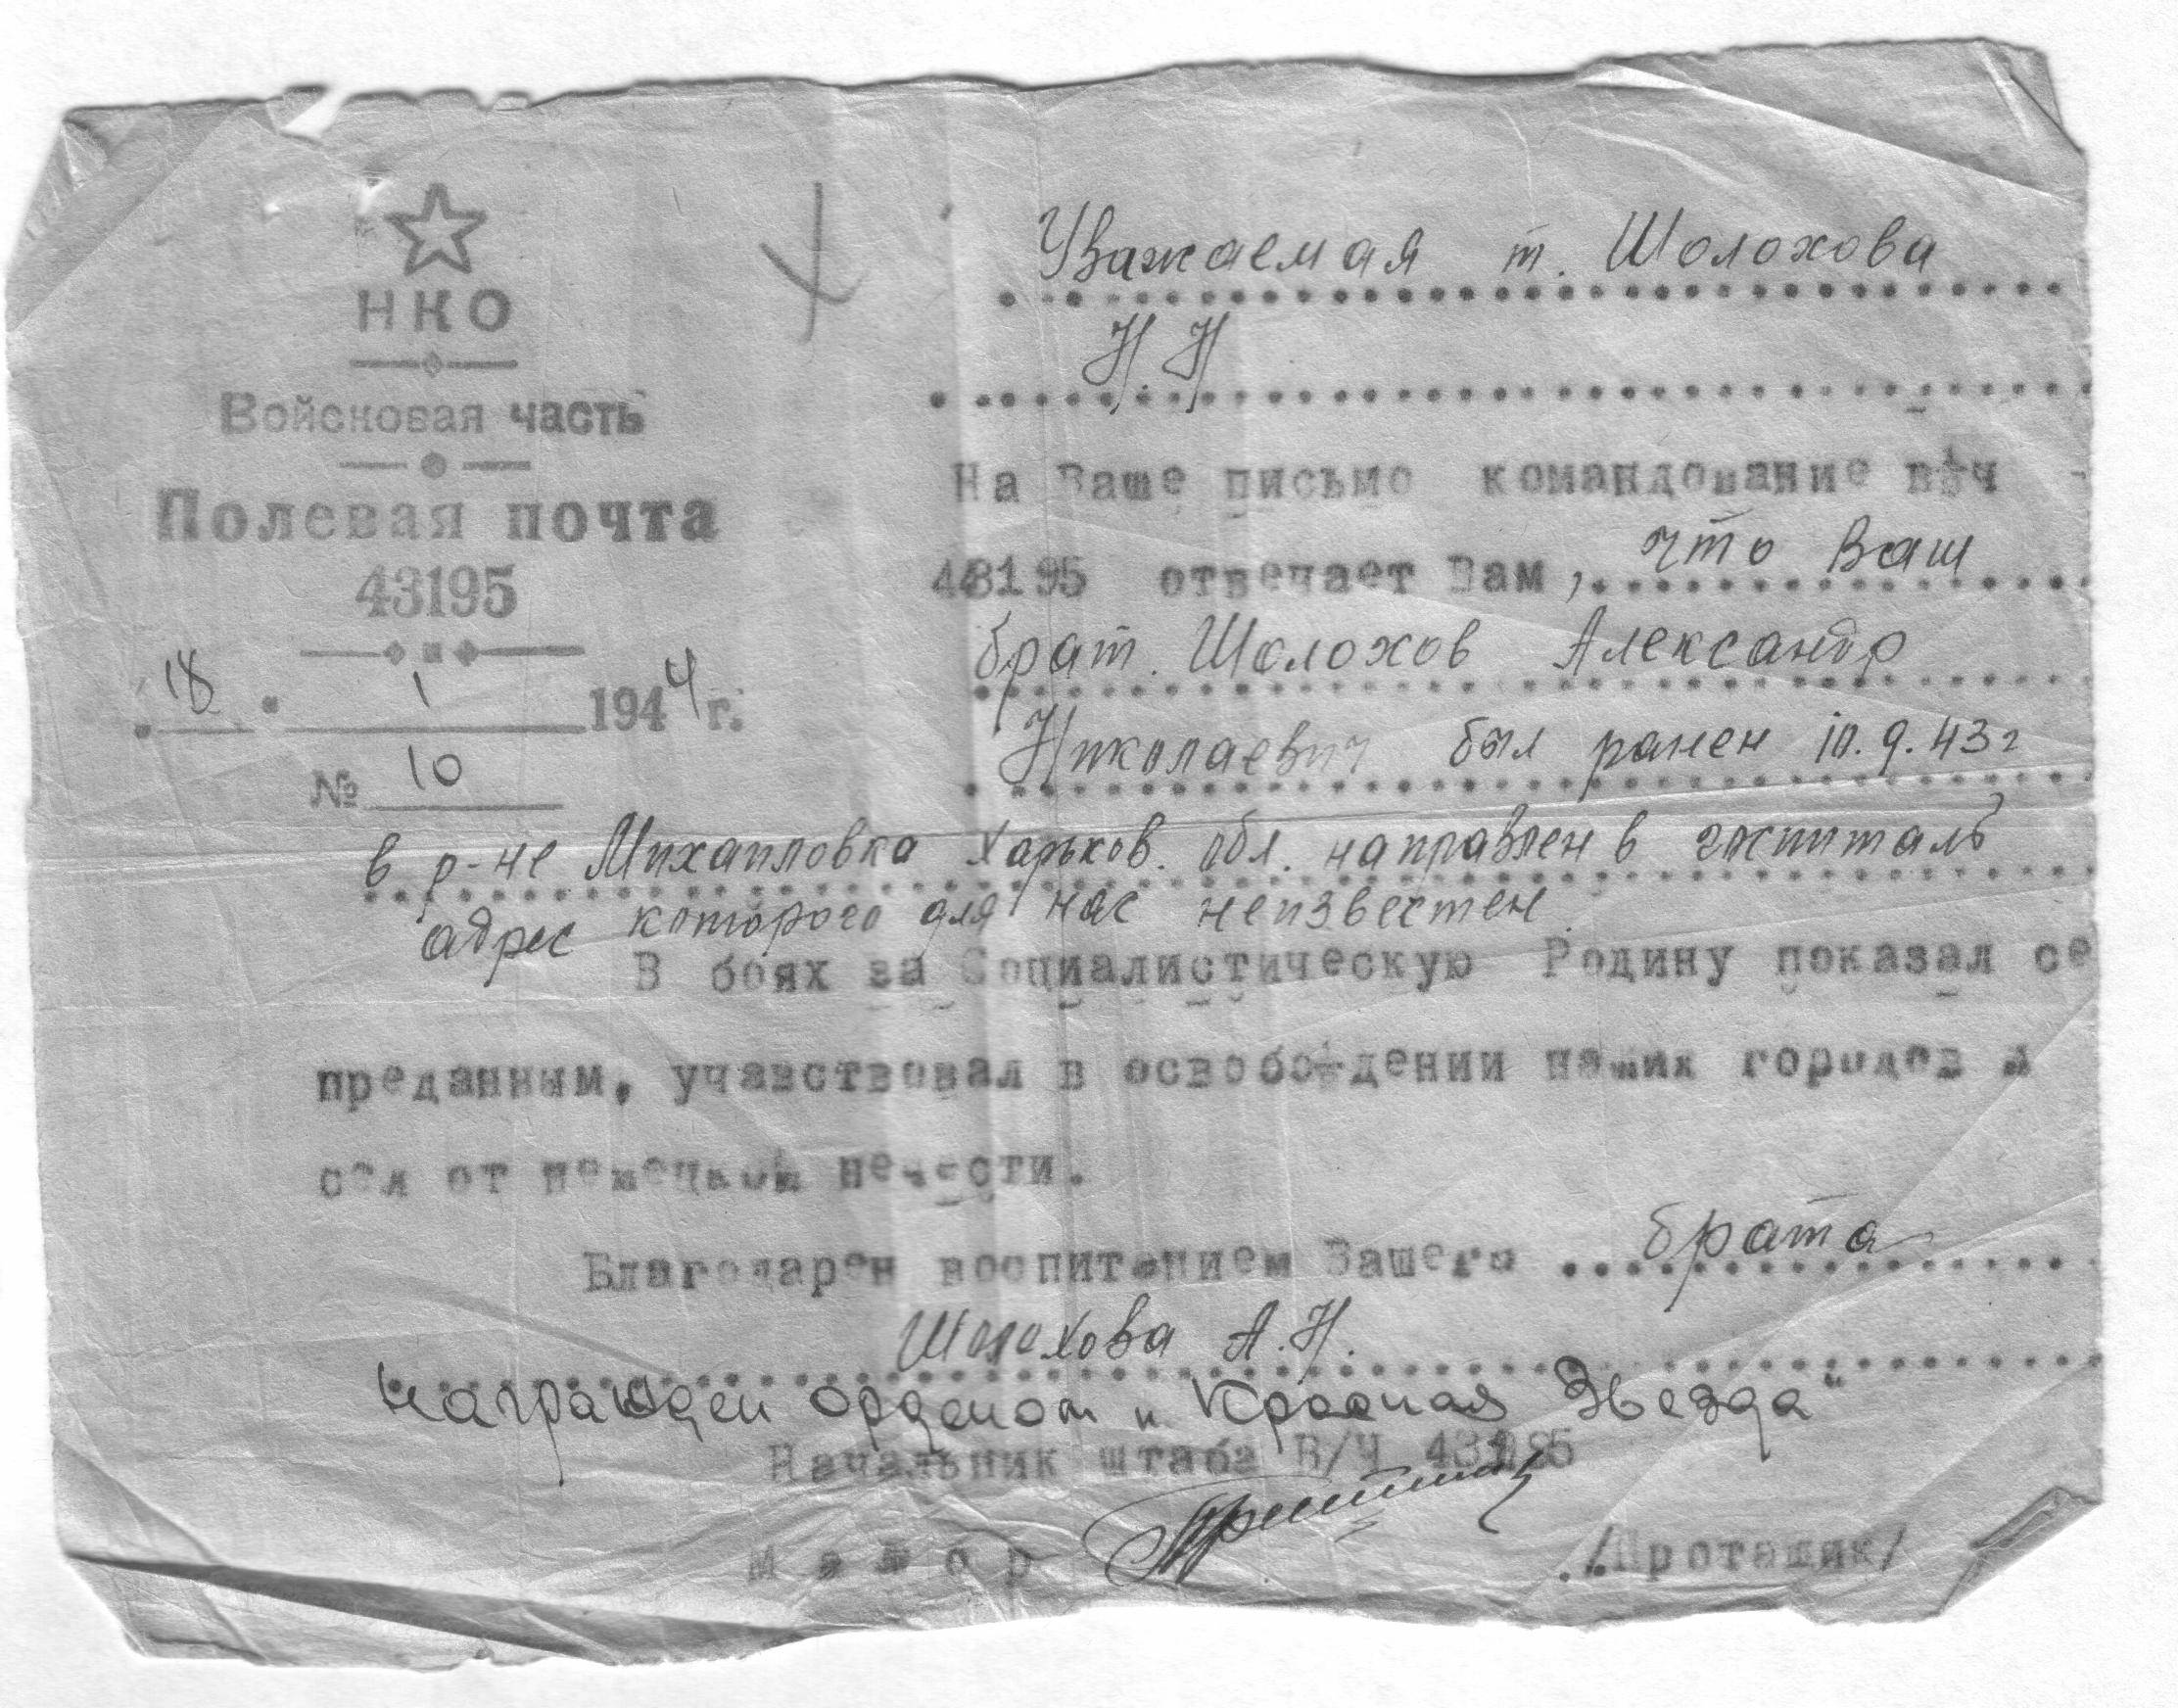 НКО
Войсковая часть
Полевая почта
43195
"18" 1 1944 г.
№ 10
Уважаемая т. Шолохова
Н. Н
На Ваше письмо командование в/ч
43195 отвечает Вам, что Ваш
брат. Шолохов Александр
Николаевич был ранен 10.9.43 г
в р-не Михаиловка Харьков. обл. направлен в госпиталь
адрес которого для нас неизвестен.
В боях за Социалистическую Родину показал се
преданным, учавствовал в освобождении наших городов и
сел от немецкой нечести.
Благодарен воспитанием Вашего брата
Шолохова А.Н.
Награжден орденом „Красная Звезда"
Начальник штаба В/Ч 43195
майор
/Проташик/